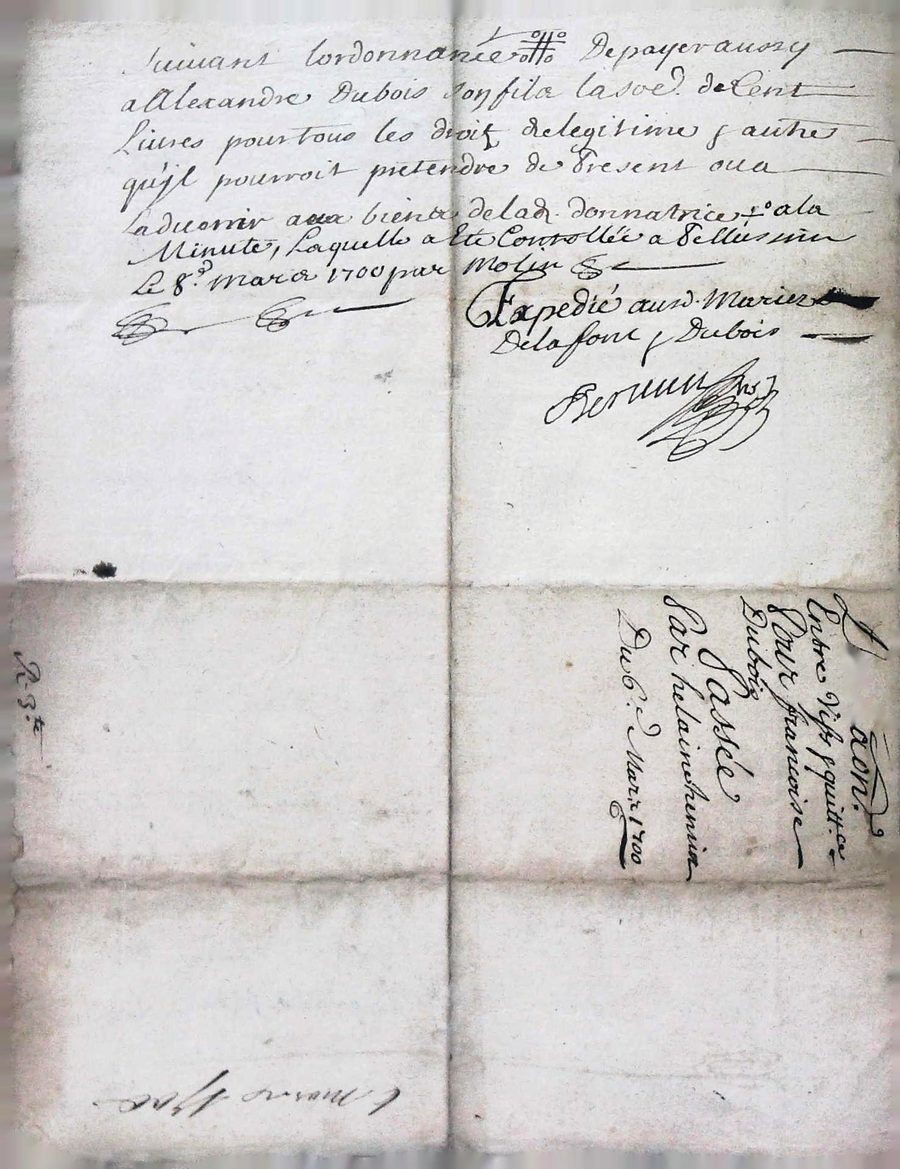 suivant lordonnance Depayer aussy
a Alexandre Dubois son fils la soe. de Cent
Liures pour tous les droitz delegitime & autre
qu'jl pourroit pretendre de Present ou a
Laduenir aux biens delad. donnatrice, a la
Minute, Laquelle a Ete Controllée a Pellussin
Le 8e. Mars 1700 par Molin
Expedié ausd. Mariez
Delafont & Dubois
aon.
Entre Vifs & quittce
Pour francoise
Dubois
Passée
Par helaine
Du 6e. Mars 1700
R 3te
6 mars 1700